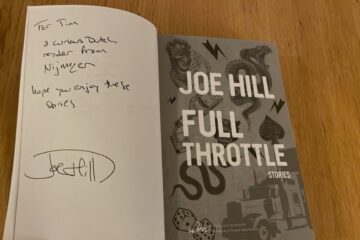 For Tim
a curious Dutch
reader from
Nijmegen
hope you enjoy these
stories
Joe Hill
JOE HILL
FULL
THROTTLE
STORIES